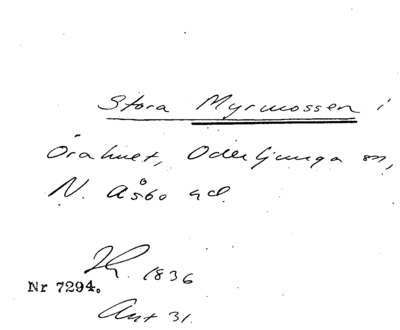 Stora Myrmossen i
Örahult, Oderljunga sn,
N. Åsbo hd.
1836
Nr 7294.
Akt 31.